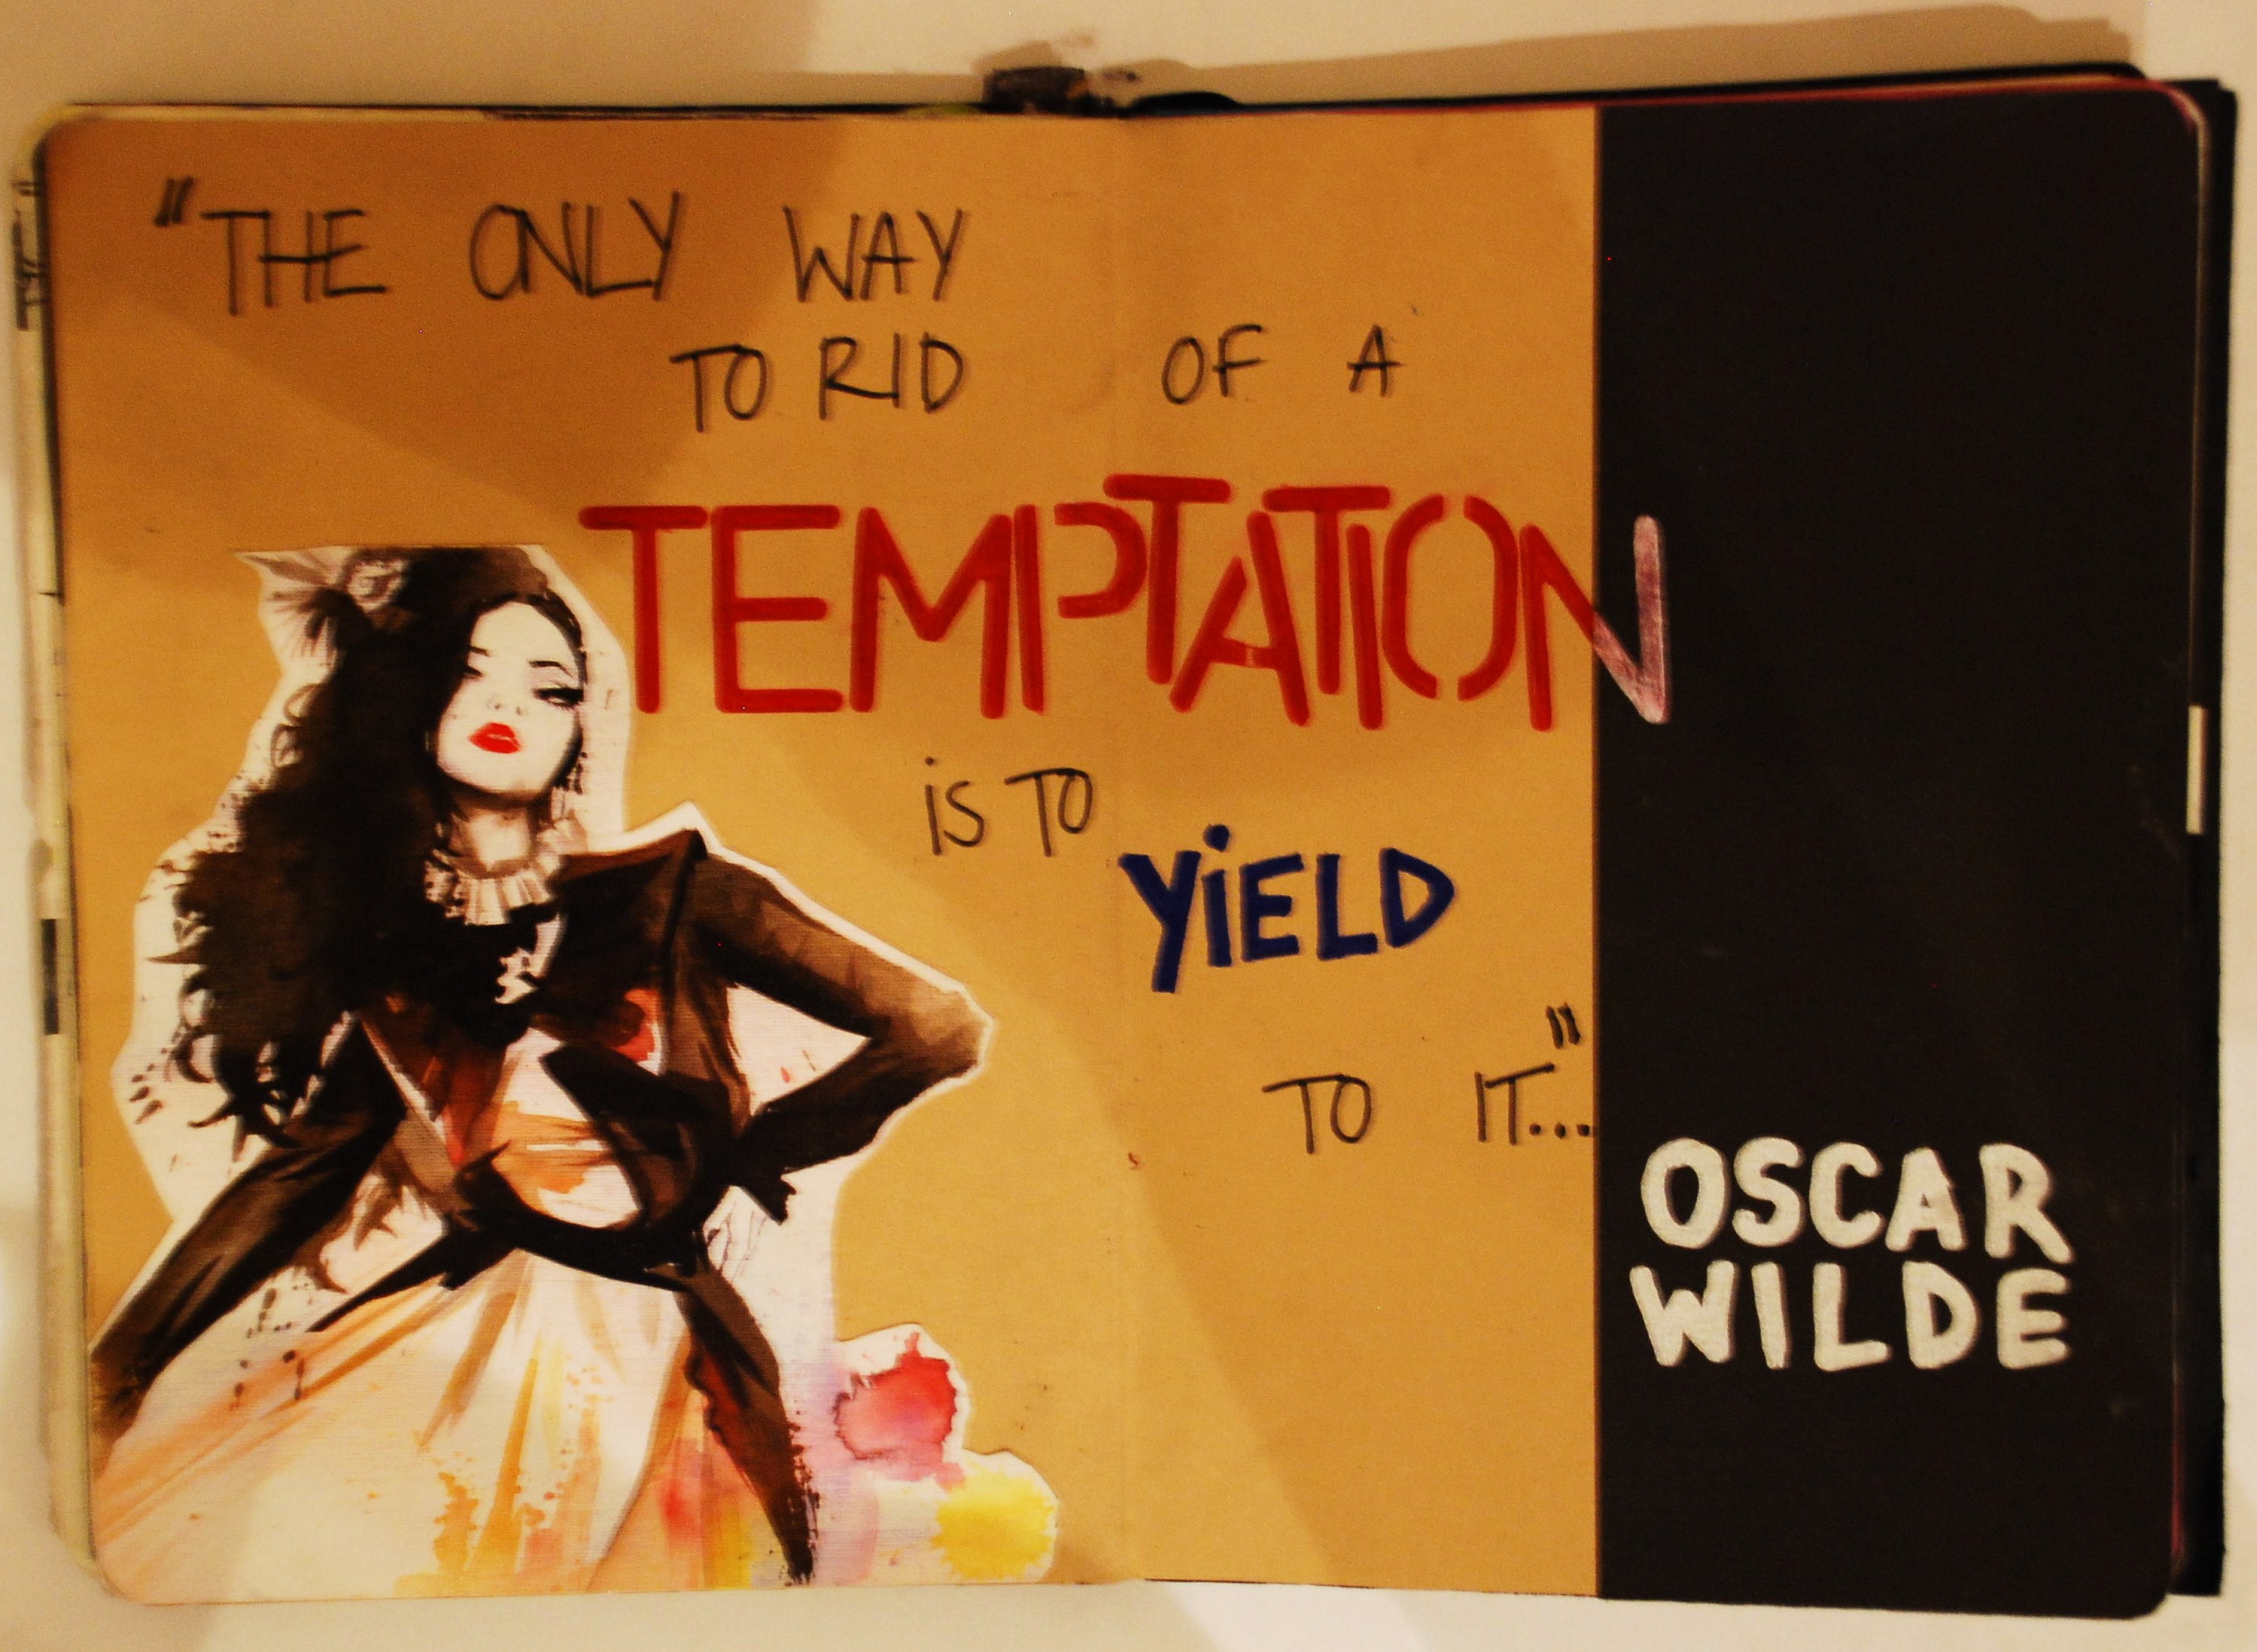 "THE ONLY WAY
TO RID OF A
TEMPTATION
iS TO
YiELD
TO IT..."
OSCAR
WILDE